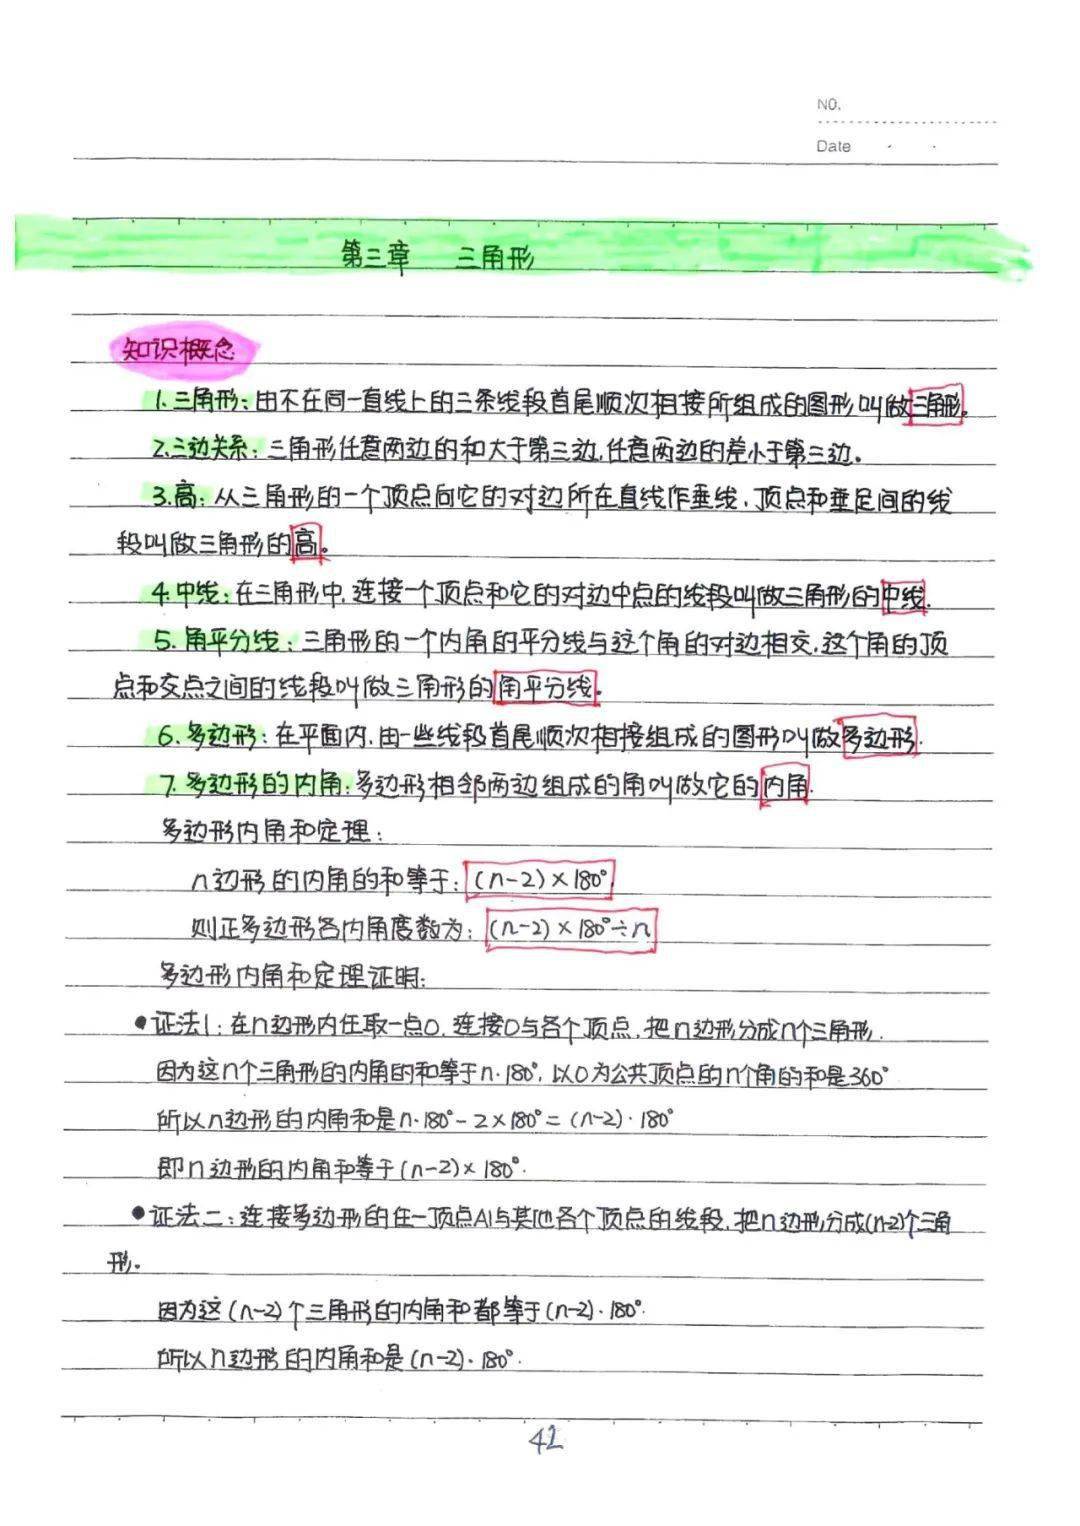 NO.
Date
第三章 三角形
知识概念
1.三角形:由不在同一直线上的三条线段首尾顺次相接所组成的图形叫做三角形。
2.三边关系:三角形任意两边的和大于第三边,任意两边的差小于第三边。
3.高:从三角形的一个顶点向它的对边所在直线作垂线,顶点和垂足间的线
段叫做三角形的高。
4.中线:在三角形中,连接一个顶点和它的对边中点的线段叫做三角形的中线.
5.角平分线:三角形的一个内角的平分线与这个角的对边相交,这个角的顶
点和交点之间的线段叫做三角形的角平分线.
6.多边形:在平面内,由一些线段首尾顺次相接组成的图形叫做多边形.
7.多边形的内角:多边形相邻两边组成的角叫做它的内角.
多边形内角和定理:
n边形的内角的和等于:(n-2)×180°
则正多边形各内角度数为:(n-2)×180°÷n
多边形内角和定理证明:
●证法1:在n边形内任取一点O,连接O与各个顶点,把n边形分成n个三角形.
因为这n个三角形的内角的和等于n·180°,以O为公共顶点的n个角的和是360°
所以n边形的内角和是n·180°-2×180°=(n-2)·180°
即n边形的内角和等于(n-2)×180°.
●证法二:连接多边形的任一顶点A1与其他各个顶点的线段,把n边形分成(n-2)个三角
形.
因为这(n-2)个三角形的内角和都等于(n-2)·180°.
所以n边形的内角和是(n-2)·180°.
42